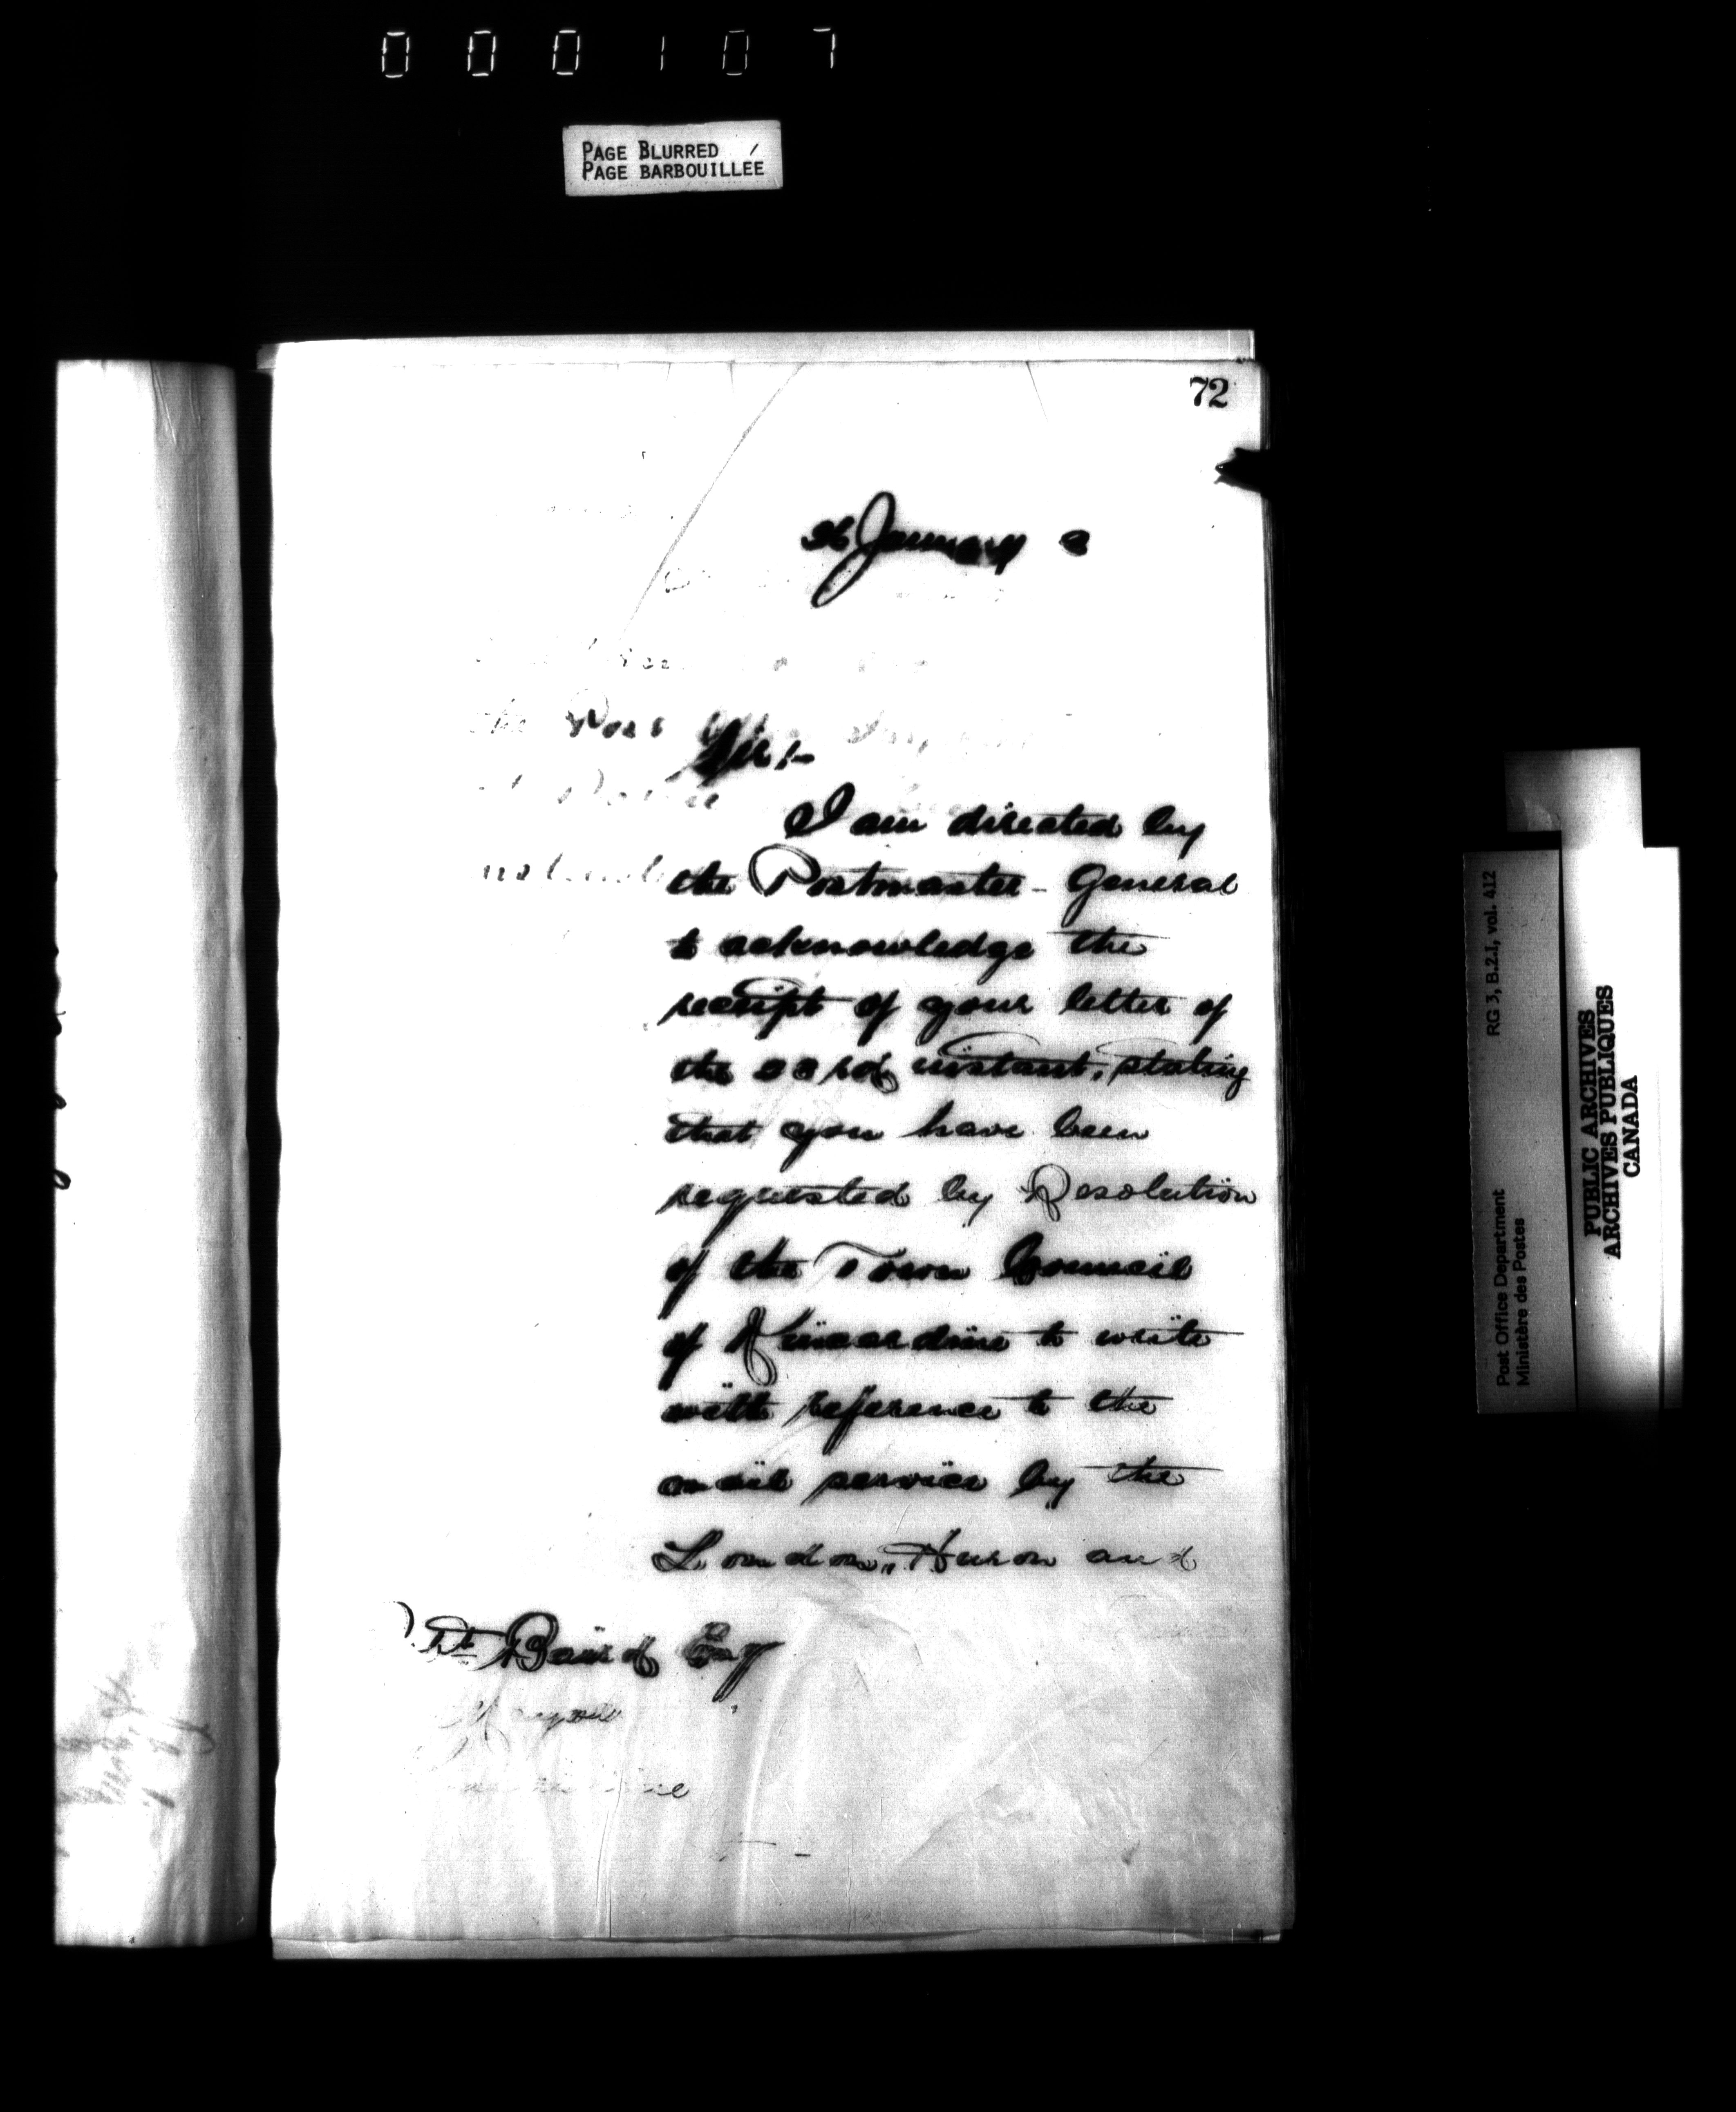 000107
PAGE BLURRED
PAGE BARBOUILLÉE
72
26 January
Sir:-
I am directed by
the Postmaster-General
to acknowledge the
receipt of your letter of
the 23rd instant, stating
that you have been
requested by Resolution
of the Town Council
of Kincardine to write
with reference to the
mail service by the
London, Huron and
Baird Esq
Mayor
Kincardine
Post Office Department
Ministère des Postes
RG 3, B.2.I, vol. 412
PUBLIC ARCHIVES
ARCHIVES PUBLIQUES
CANADA